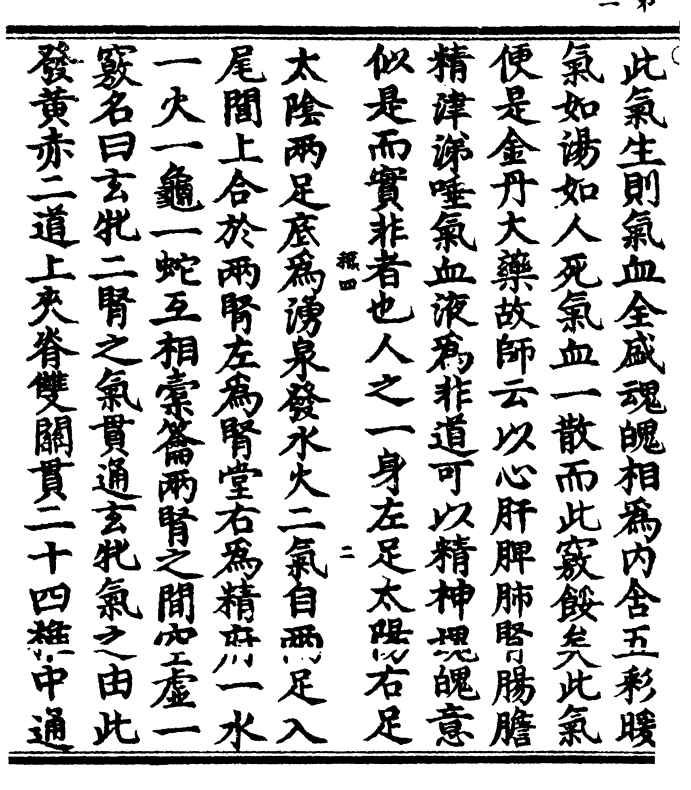 此氣生則氣血全盛魂魄相爲內含五彩暖
氣如湯如人死氣血一散而此竅餒矣此氣
便是金丹大藥故師云以心肝脾肺腎腸膽
精津涕唾氣血液爲非道可以精神魂魄意
似是而實非者也人之一身左足太陽右足
二
太陰兩足底爲湧泉發水火二氣自兩足入
尾閭上合於兩腎左爲腎堂右爲精府一水
一火一龜一蛇互相橐籥兩腎之間空虛一
竅名曰玄牝二腎之氣貫通玄牝氣之由此
發黃赤二道上夾脊雙關貫二十四椎中通